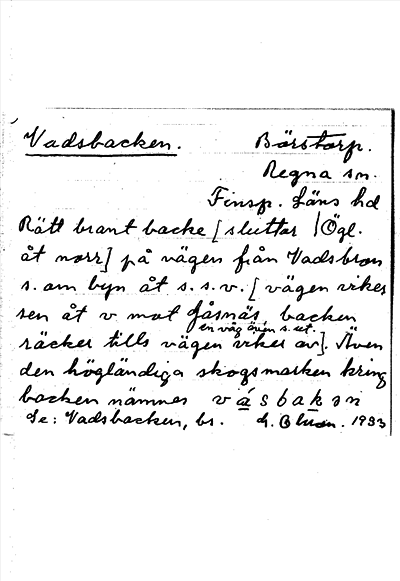 Vadsbacken. Börstorp.
Regna sn.
Finsp. Läns hd
Rätt brant backe [sluttar Ögl.
åt norr] på vägen från Vadsbron
s. om byn åt s.s.v. [vägen viker
sen åt v mot Jåsnäs, backen
en väg åt
räcker tills vägen viker av]. Även
den högländiga skogsmarken kring
backen nämnes vásbakən
Se: Vadsbacken, br. 1933